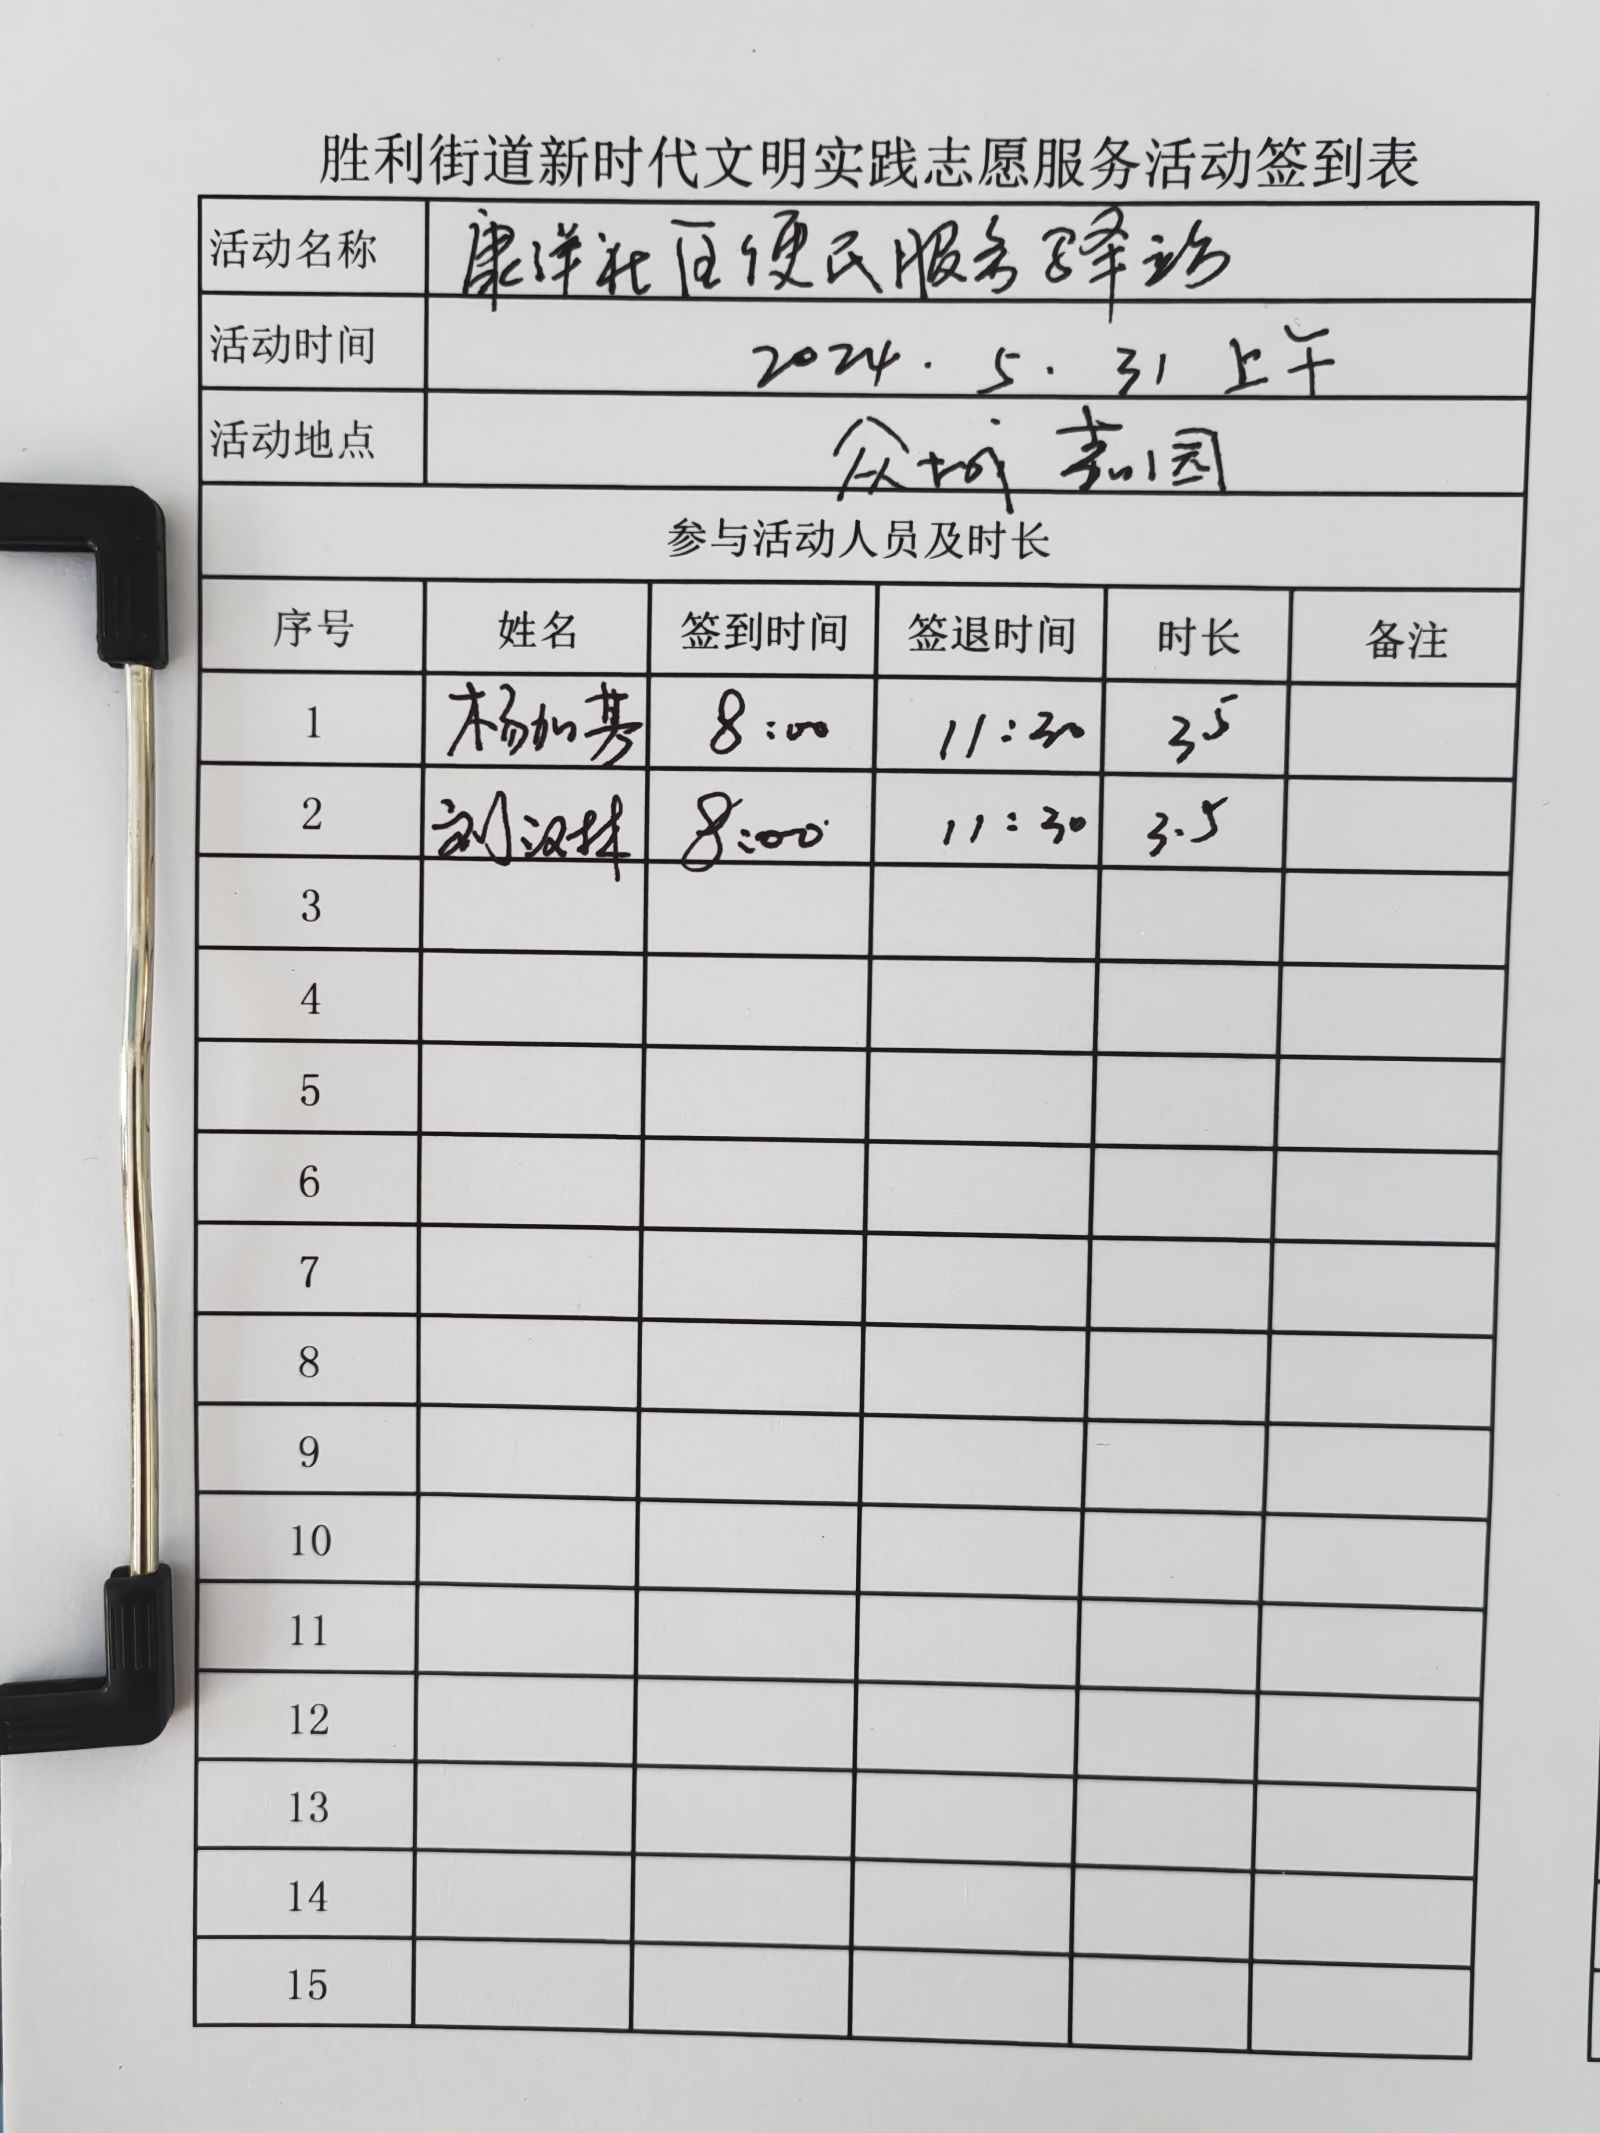 胜利街道新时代文明实践志愿服务活动签到表
活动名称 康洋社区便民服务驿站
活动时间 2024.5.31上午
活动地点 众城嘉园
参与活动人员及时长
序号 姓名 签到时间 签退时间 时长 备注
1 杨加基 8:00 11:30 3.5
2 刘汉林 8:00 11:30 3.5
3
4
5
6
7
8
9
10
11
12
13
14
15